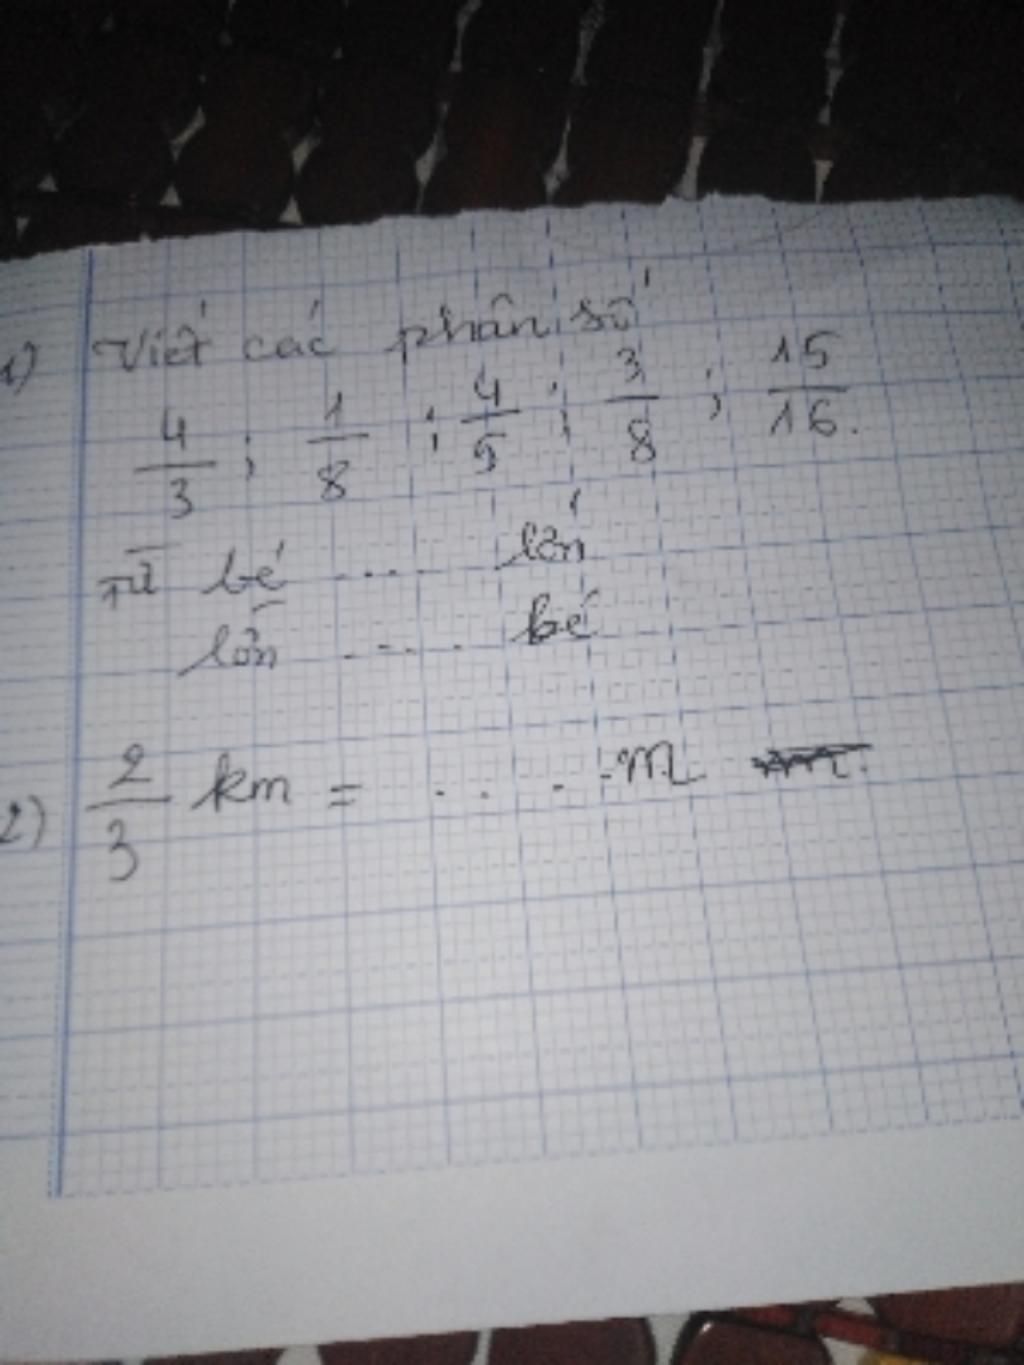 1) Viết các phân số
4/3 ; 1/8 ; 4/5 ; 3/8 ; 15/16.
Từ bé .... lớn
lớn ..... bé
2) 2/3 km = .. . . m